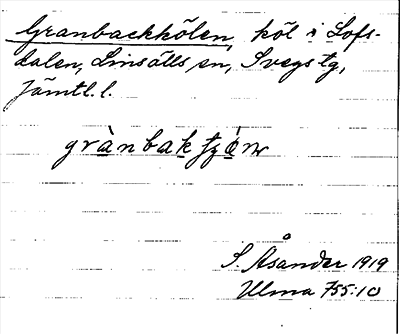 Granbackhölen, höl i Lofs-
dalen, Linsälls sn, Svegs tg,
Jämtl. l.
grànbak
S. Åsander 1919
Ulma 755:10